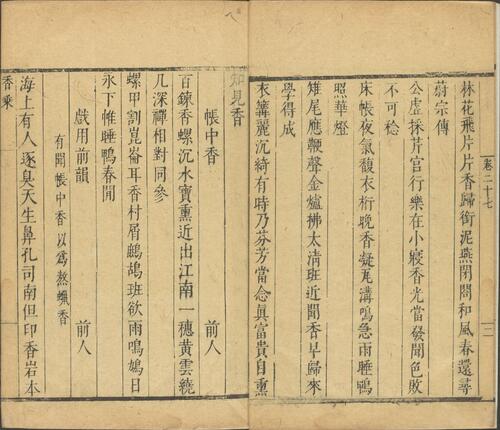 林花飛片片香歸銜泥燕閉閤和風春還尋
蔚宗傳
公虛採芹宮行樂在小寢香光當發聞色敗
不可稔
床帳夜氣馥衣桁晚香凝瓦溝鳴急雨睡鴨
照華燈
雉尾應鞭聲金爐拂太清班近聞香早歸來
學得成
衣篝麗沉綺有時乃芬芳當念眞富貴自熏
卷二十七
三
知見香
帳中香
前人
百鍊香螺沉水寶熏近出江南一穗黄雲繞
几深禪相對同參
螺甲割崑崙耳香村屑鷓鴣班欲雨鳴鳩日
永下帷睡鴨春閒
戲用前韻
前人
有聞帳中香以爲熬蠟香
海上有人逐臭天生鼻孔司南但印香岩本
香乘